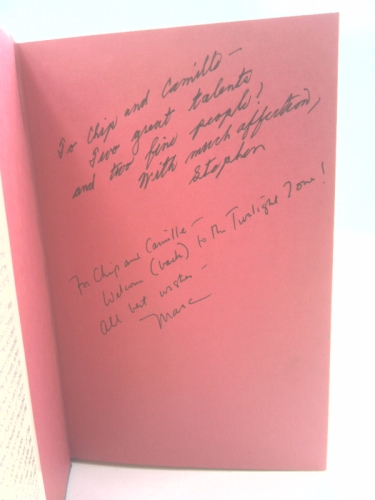 To Chip and Camille –
Two great talents
and two fine people!
With much affection,
Stephen
For Chip and Camille –
Welcome (back) to the Twilight Zone!
All best wishes –
Marc